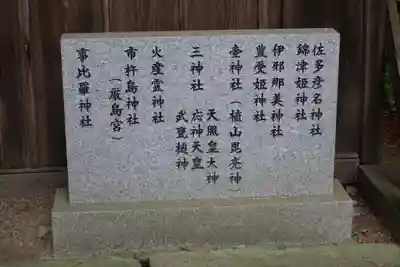 佐多彦名神社
錦津姫神社
伊邪那美神社
豊受姫神社
壶神社(植山毘売神)
天照皇大神
三神社 応神天皇
武甕槌神
火産霊神社
市杵島神社
(厳島宮)
事比羅神社